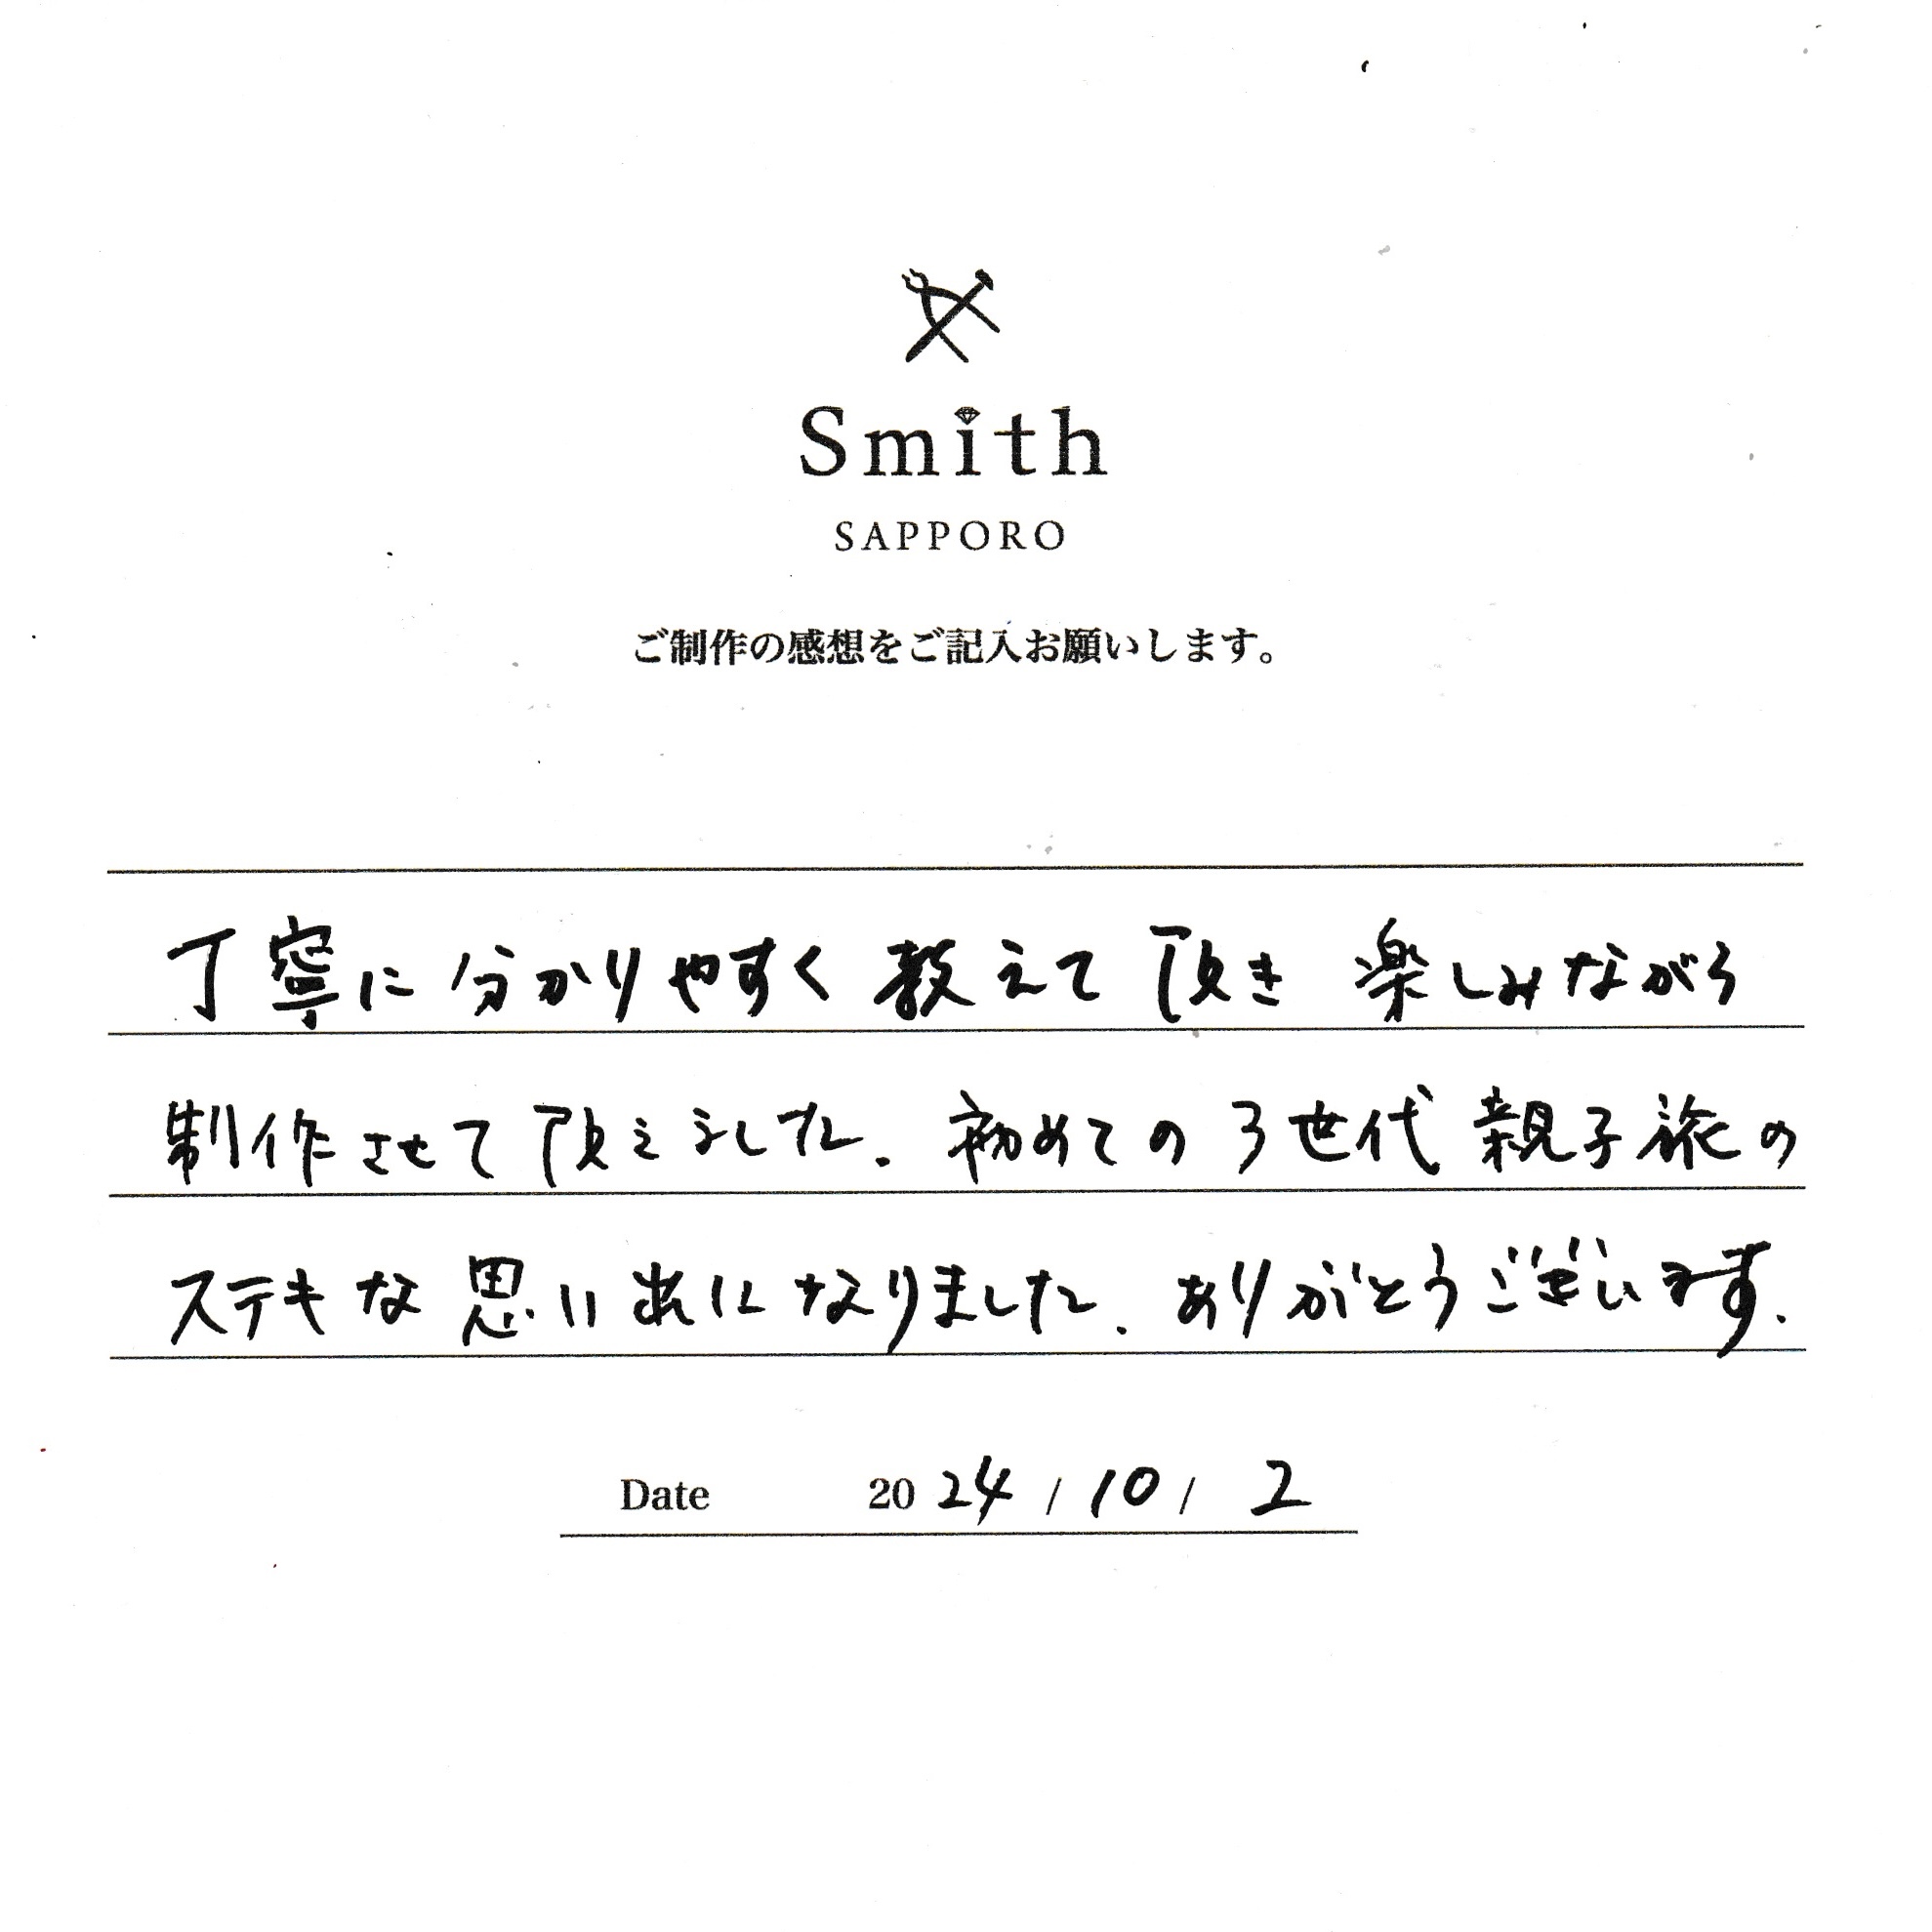 Smith
SAPPORO
ご制作の感想をご記入お願いします。
丁寧に分かりやすく教えて頂き 楽しみながら
制作させて頂きました。初めての3世代親子旅の
ステキな思い出になりました。ありがとうございます。
Date 2024/10/2